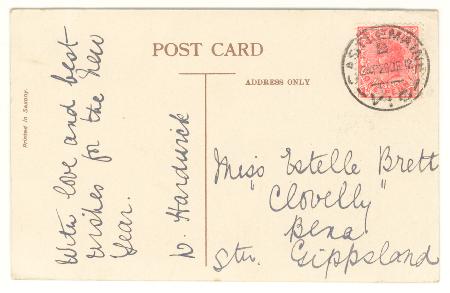 POST CARD
ADDRESS ONLY
Printed in Saxony.
With love and best
wishes for the New
Year.
D. Hardwick
CASTLEMAINE
VIC
Miss Estelle Brett
"Clovelly"
Bena
Sth. Gippsland